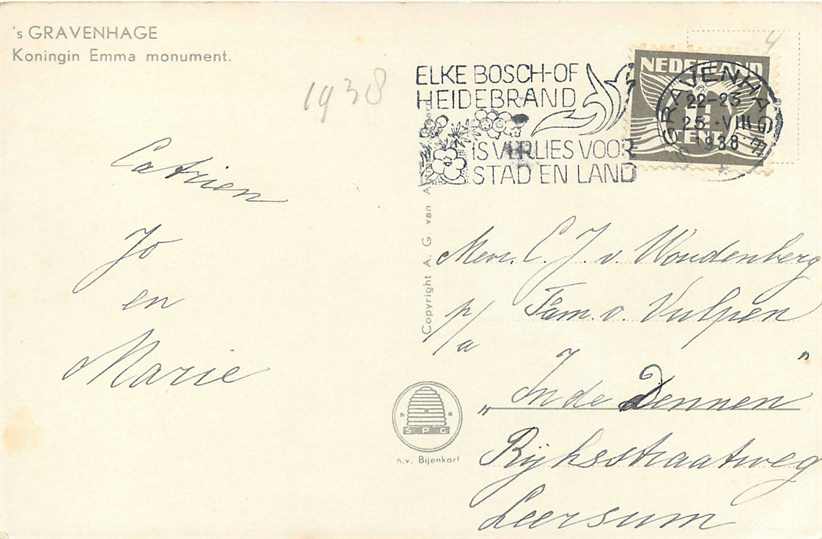 's GRAVENHAGE
Koningin Emma monument.
1938
4
ELKE BOSCH-OF
HEIDEBRAND
IS VERLIES VOOR
STAD EN LAND
NEDERLAND
CENT
'S GRAVENHAGE
22-23
25.VIII
1938
Catrien
Jo
en
Marie
Copyright A. G. van A
Mevr. C. J. v. Woudenberg
p/a Fam. v. Vulpen
„In de Dennen"
Rijksstraatweg
Leersum
S P G
n.v. Bijenkorf